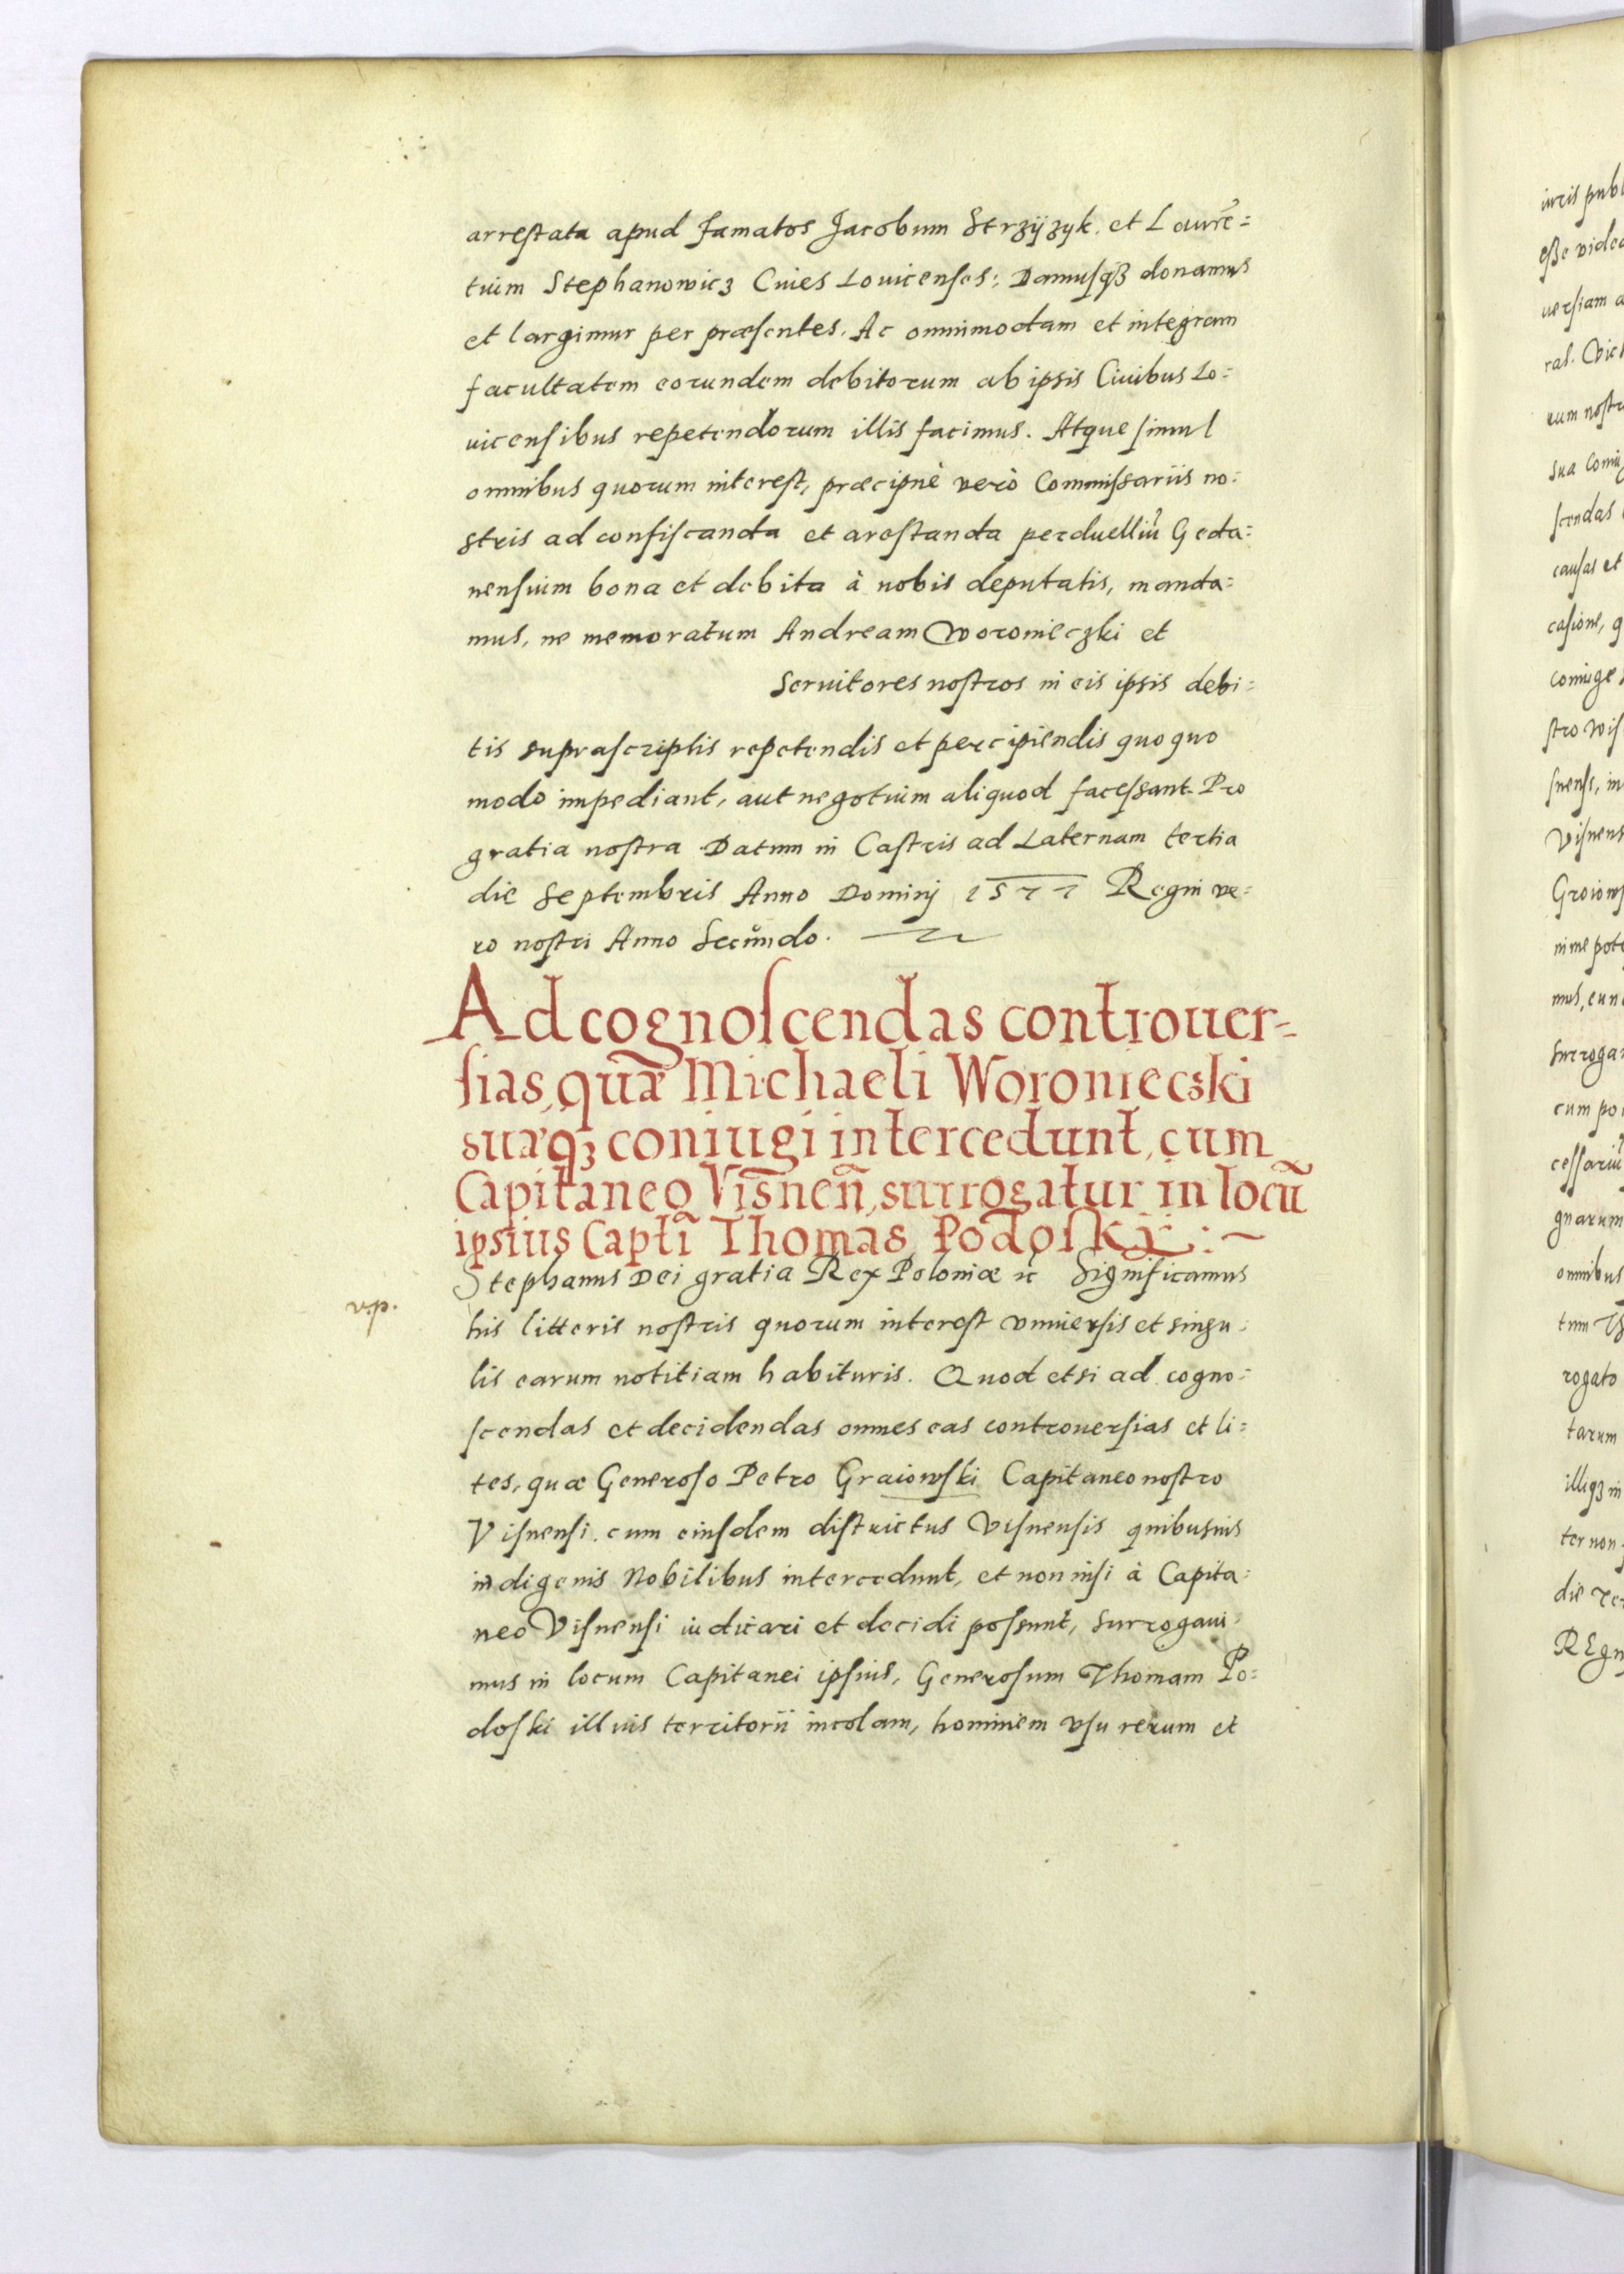 arrestata apud famatos Jacobum Strzÿzÿk. et Laurē=
tium Stephanowicz Ciues Louicenses: Damusqȝ donamus
et largimur per præsentes. Ac omnimodam et integram
facultatem eorundem debitorum ab ipsis Ciuibus Lo=
uicensibus repetendorum illis facimus. Atque simul
omnibus quorum interest, præcipuè verò Commissariis no=
stris ad confiscanda et arestanda perduelliū Geda=
nensium bona et debita à nobis deputatis, manda=
mus, ne memoratum Andream Woronieczki et
Seruitores nostros in eis ipsis debi=
tis suprascriptis repetendis et percipiendis quoquo
modo impediant, aut negotium aliquod facessant. Pro
gratia nostra. Datum in Castris ad Laternam tertia
die Septembris Anno Dominij 1577 Regni ve=
ro nostri Anno Secundo.
Ad cognoscendas controuer=
sias, quæ Michaeli Woroniecski
suæqȝ coniugi intercedunt, cum
Capitaneo Visneñ, surrogatur in locū
ipsius Captī Thomas Podoski :~
Stephanus Dei gratia Rex Poloniæ ꝛc Significamus
v.p.
his litteris nostris quorum interest vniuersis et singu=
lis earum notitiam habituris. Quod etsi ad cogno=
scendas et decidendas omnes eas controuersias et li=
tes, quæ Generoso Petro Graiowski Capitaneo nostro
Visnensi. cum eiusdem districtus Visnensis quibusuis
indigenis Nobilibus intercedunt, et non nisi à Capita=
neo Visnensi iudicari et decidi possunt, surrogaui=
mus in locum Capitanei ipsius, Generosum Thomam Po=
doski illius territorii incolam, hominem vsu rerum et